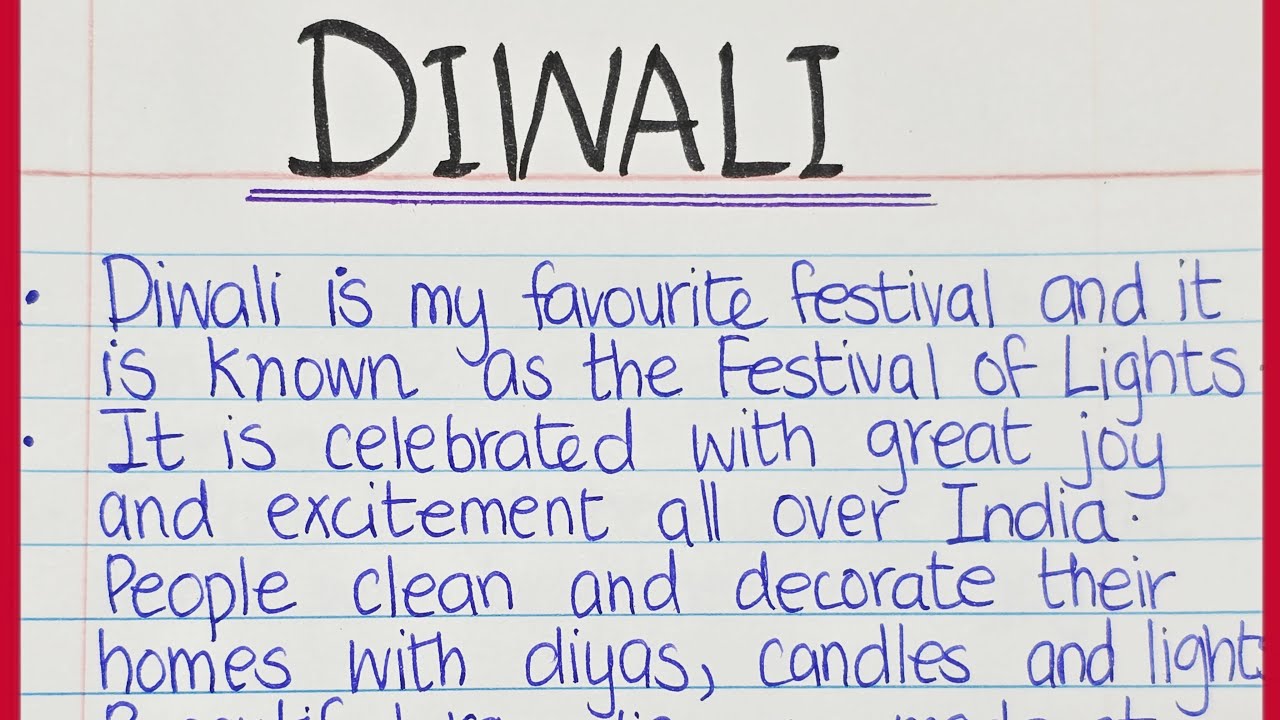 DIWALI
• Diwali is my favourite festival and it
is known as the Festival of Lights.
• It is celebrated with great joy
and excitement all over India.
People clean and decorate their
homes with diyas, candles and light